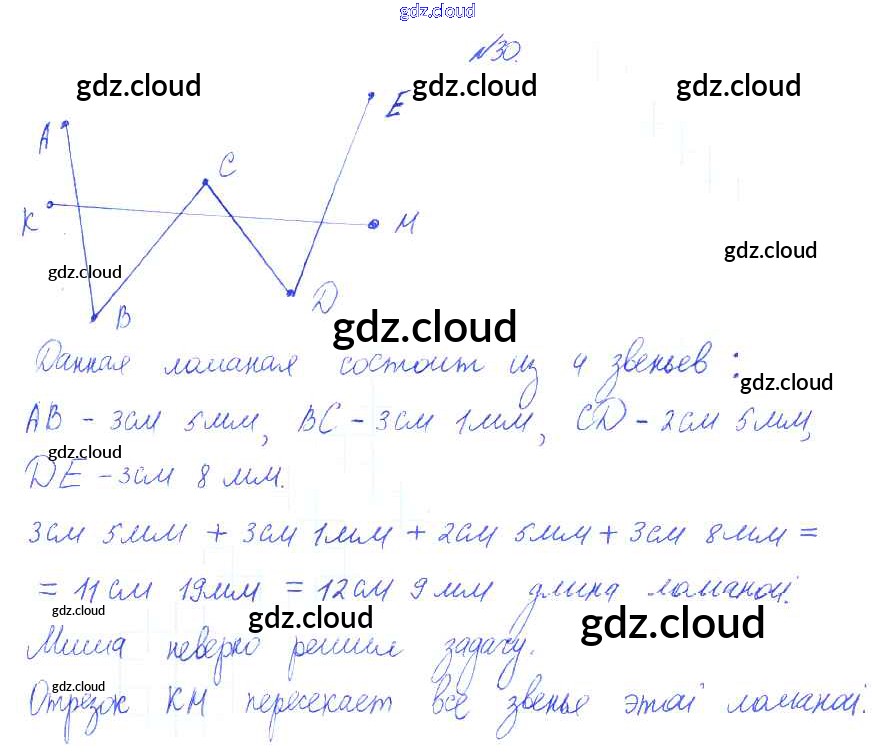 gdz.cloud
№30.
gdz.cloud gdz.cloud gdz.cloud
A E
C
K M
gdz.cloud
gdz.cloud
B D
gdz.cloud
Данная ломаная состоит из 4 звеньев:
gdz.cloud
AB - 3см 5мм, BC - 3см 1мм, CD - 2см 5мм,
gdz.cloud
DE - 3см 8 мм.
3см 5мм + 3см 1мм + 2см 5мм + 3см 8мм =
= 11см 19мм = 12см 9мм длина ломаной.
gdz.cloud gdz.cloud gdz.cloud
Миша неверно решил задачу.
gdz.cloud
Отрезок КМ пересекает все звенья этой ломаной.